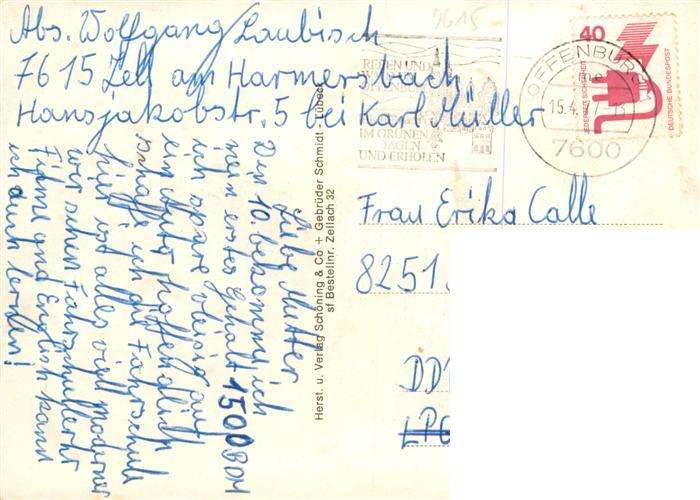 Abs. Wolfgang Laubisch
7615 Zell am Harmersbach
Hansjakobstr. 5 bei Karl Müller
Liebe Mutter
Den 10 bekomme ich
mein erstes Gehalt 1500 DM
ich spare fleisig auf
ein Auto hoffentlich
schaffe ich die Fahrschule
hier ist alles viel moderner
wir sehen Fahrschullerhr
Filme und English kann
ich auch lernen!
Herst. u. Verlag Schöning & Co + Gebrüder Schmidt - Lübeck
sf Bestellnr. Zellach 32
9615
REBEN UND
IM GRÜNEN
TAGEN
UND ERHOLEN
OFFENBURG
me
15.4.
7600
40
JEDERZEIT SICHERHEIT
DEUTSCHE BUNDESPOST
Frau Erika Calle
8251
DD
LPG